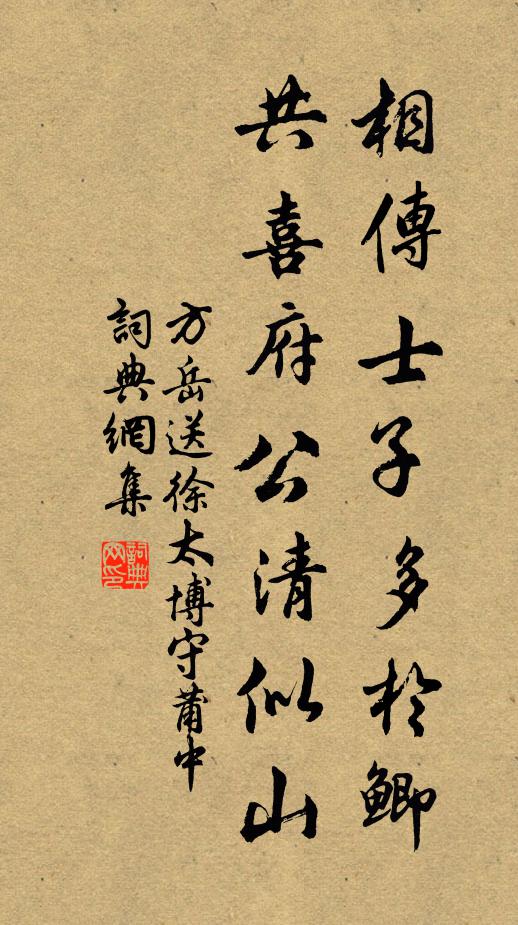 相傳士子多於鯽
共喜府公清似山
方岳送徐太博守莆中
詞典網集
詞典网印